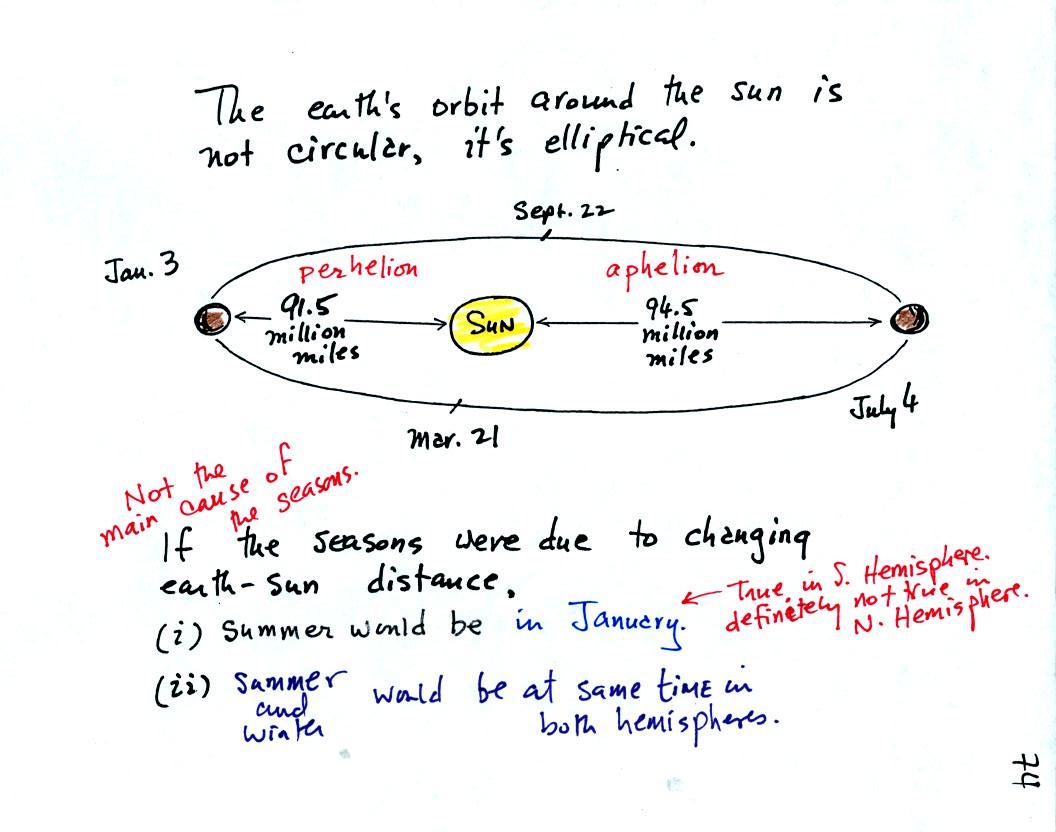 The earth's orbit around the sun is
not circular, it's elliptical.
Sept. 22
Jan. 3
perhelion
aphelion
91.5
million
miles
SUN
94.5
million
miles
July 4
Mar. 21
Not the
main cause of
the seasons.
If the seasons were due to changing
earth-sun distance,
(i) Summer would be in January.
← True in S. Hemisphere.
definetely not true in
N. Hemisphere.
(ii) Summer
and
winter
would be at same time in
both hemispheres.
74